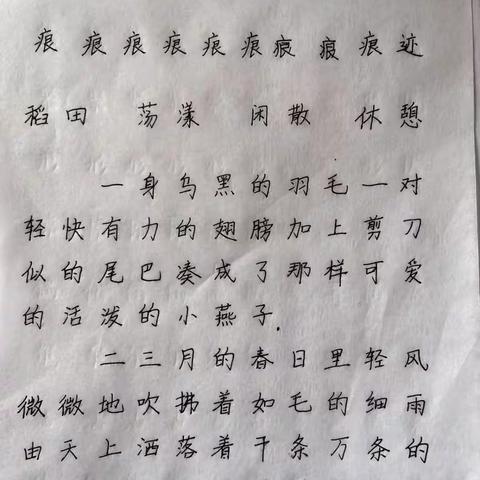 痕痕痕痕痕痕痕痕痕迹
稻田 荡漾 闲散 休憩
一身乌黑的羽毛一对
轻快有力的翅膀加上剪刀
似的尾巴凑成了那样可爱
的活泼的小燕子.
二三月的春日里轻风
微微地吹拂着如毛的细雨
由天上洒落着千条万条的